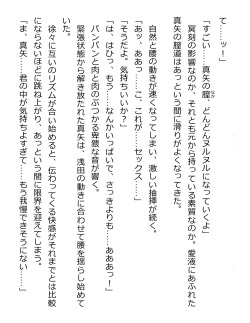 て……ッ！」
「すごい……真矢の膣、どんどんヌルヌルになっていくよ」
　冥刻の影響なのか、それとも元から持っている素質なのか。愛液にあふれた
真矢の膣道はあっという間に滑りがよくなってきた。
「あっ、ああっ……こ、これが……セックス……」
　自然と腰の動きが速くなってしまい、激しい抽挿が続く。
「そうだよ、気持ちいいか？」
「は、はひっ、もう……なんかいっぱいで、さっきよりも……あああっ！」
　パンパンと肉と肉のぶつかる卑猥な音が響く。
　緊張状態から解き放たれた真矢は、浅田の動きに合わせて腰を揺らし始めて
いた。
　徐々に互いのリズムが合い始めると、伝わってくる快感がそれまでとは比較
にならないほどに跳ね上がり、あっという間に限界を迎えてしまう。
「ま、真矢……君の中が気持ちよすぎて……もう我慢できそうにない……」